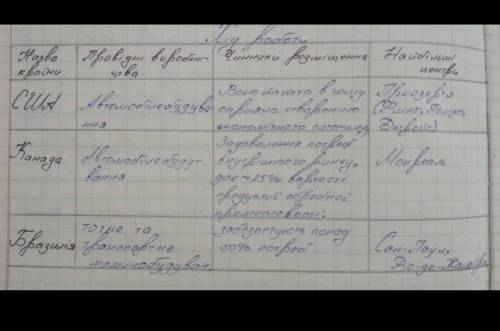 Хід роботи
Назва країни
Провідні виробни-
цтва
Чинники розміщення
Найбільші
центри
США
Автомобілебудува-
ння
Воно багато в чому
сприяло створенню
економічного потенціалу
Приозер'я
(Флінт, Толідо,
Детройт)
Канада
Автомобілебуду-
вання
Задоволення потреб
внутрішнього ринку,
дає ~25% вартості
продукції обробної
промисловості.
Монреаль
Бразилія
точне та
транспортне
машинобудуван.
забезпечують понад
50% потреб
Сан-Паулу,
Ріо-де-Жанейро